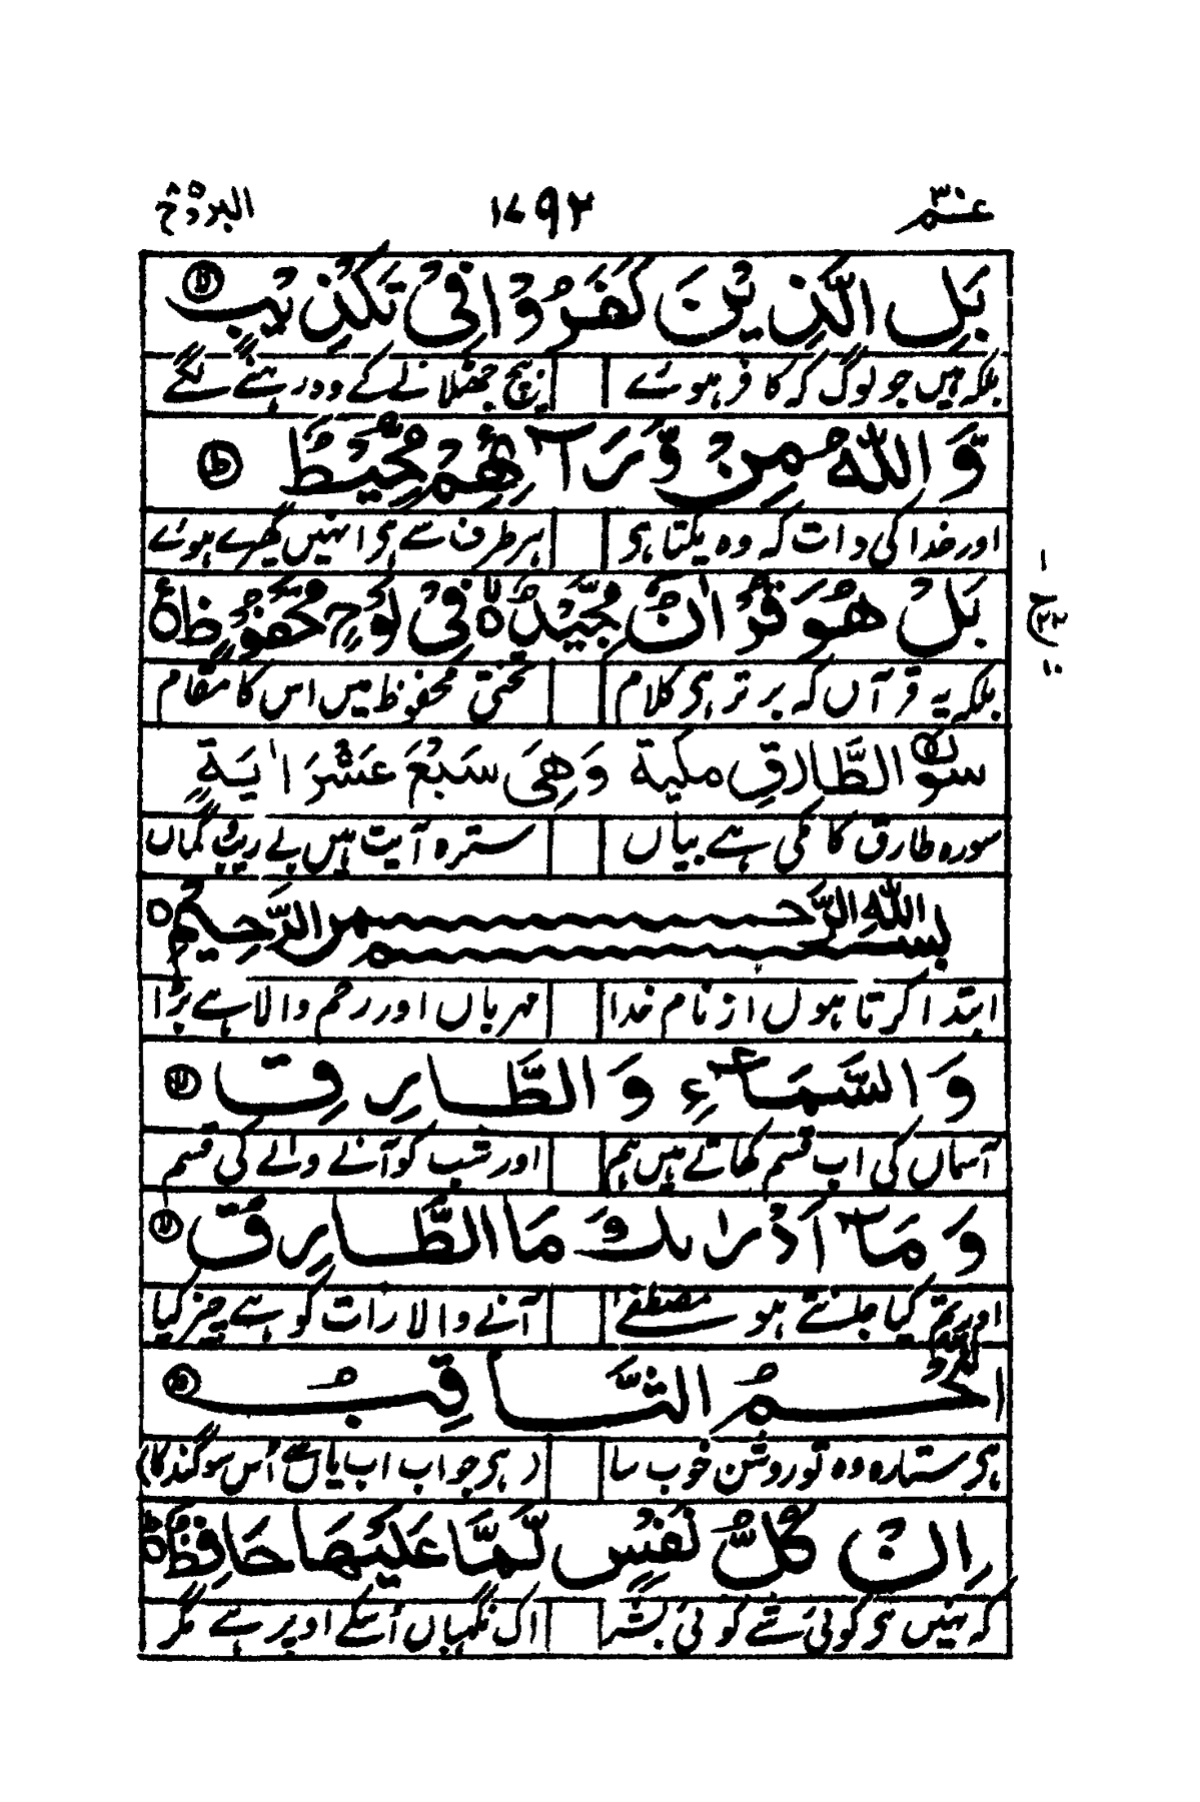 عم ۳۰ ۱۷۹۲ البروج
بَلِ الَّذِيْنَ كَفَرُوْا فِيْ تَكْذِيْبٍ
بلکہ ہیں جو لوگ کہ کافر ہوئے بیچ جھٹلانے کے وہ رہنے لگے
وَّاللّٰهُ مِنْ وَّرَآئِهِمْ مُّحِيْطٌ ط
اور خدا کی ذات کہ وہ یکتا ہی ہر طرف سے ہی انہیں گھیرے ہوئے
بَلْ هُوَ قُرْاٰنٌ مَّجِيْدٌ فِيْ لَوْحٍ مَّحْفُوْظٍ
بلکہ یہ قرآں کہ برتر ہی کلام تختیٔ محفوظ میں اس کا مقام
سورة الطَّارِقِ مكية وَهِىَ سَبْعَ عَشْرَ اٰيَةٍ
سورہ طارق کا مکی ہے بیاں سترہ آیت ہیں بے ریب گماں
بسم اللهِ الرَّحمن الرَّحِيم
ابتدا کرتا ہوں از نام خدا مہرباں اور رحم والا ہے بڑا
وَ السَّمَآءِ وَ الطَّارِقِ
آسماں کی اب قسم کھاتے ہیں ہم اور شب کو آنے والے کی قسم
وَ مَآ اَدْرٰىكَ مَا الطَّارِقُ
اور تم کیا جانتے ہو مصطفےٰ آنے والا رات کو ہے چیز کیا
النَّجْمُ الثَّاقِبُ ط
ہی ستارہ وہ تو روشن خوب سا (ہی جواب اب یاں سے اُس سوگند کا)
اِنْ كُلُّ نَفْسٍ لَّمَّا عَلَيْهَا حَافِظٌ ط
کہ نہیں ہی کوئی شے کوئی بشر اک نگہباں اُسکے اوپر ہے مگر